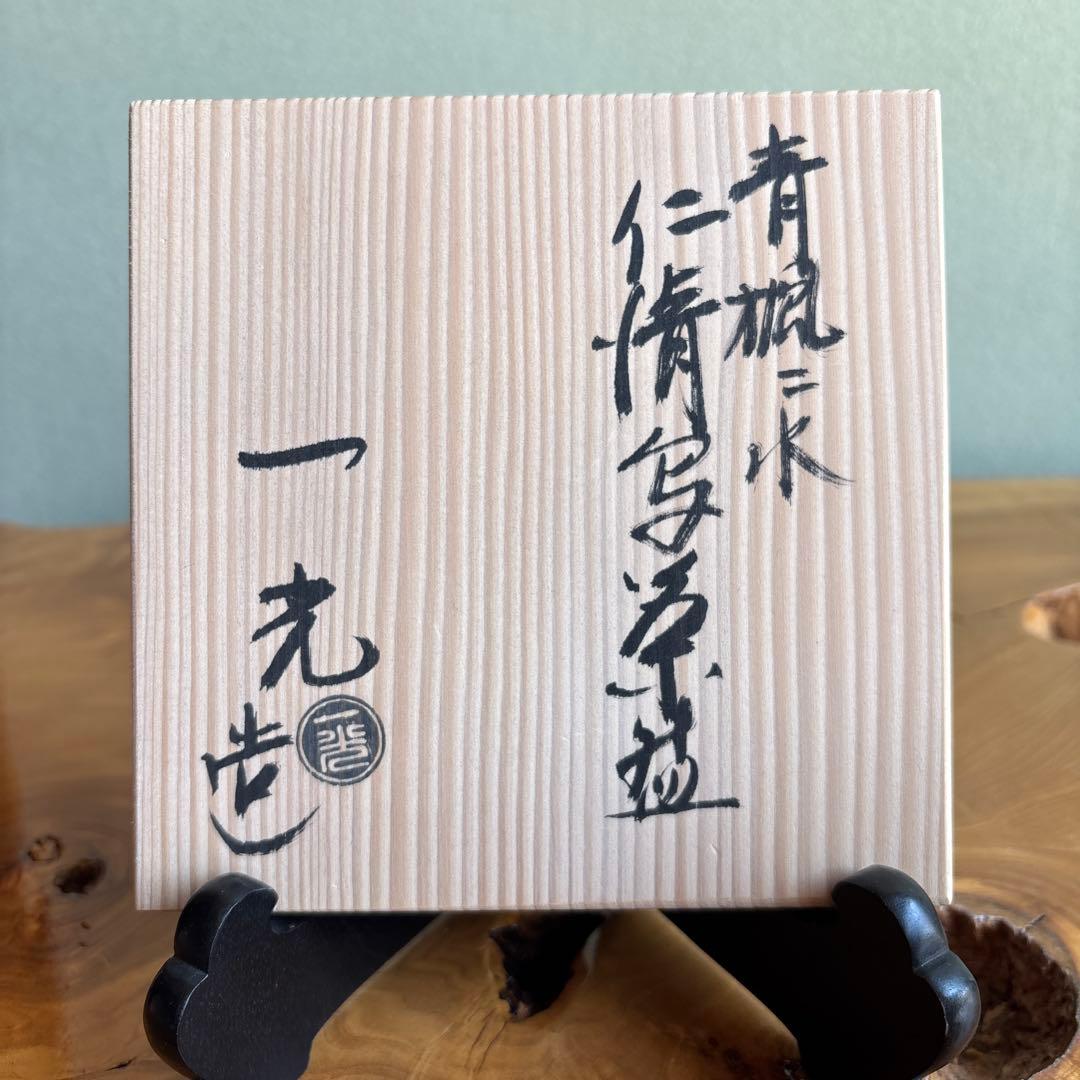 青楓ニ水
仁清写茶碗
一光造
一光